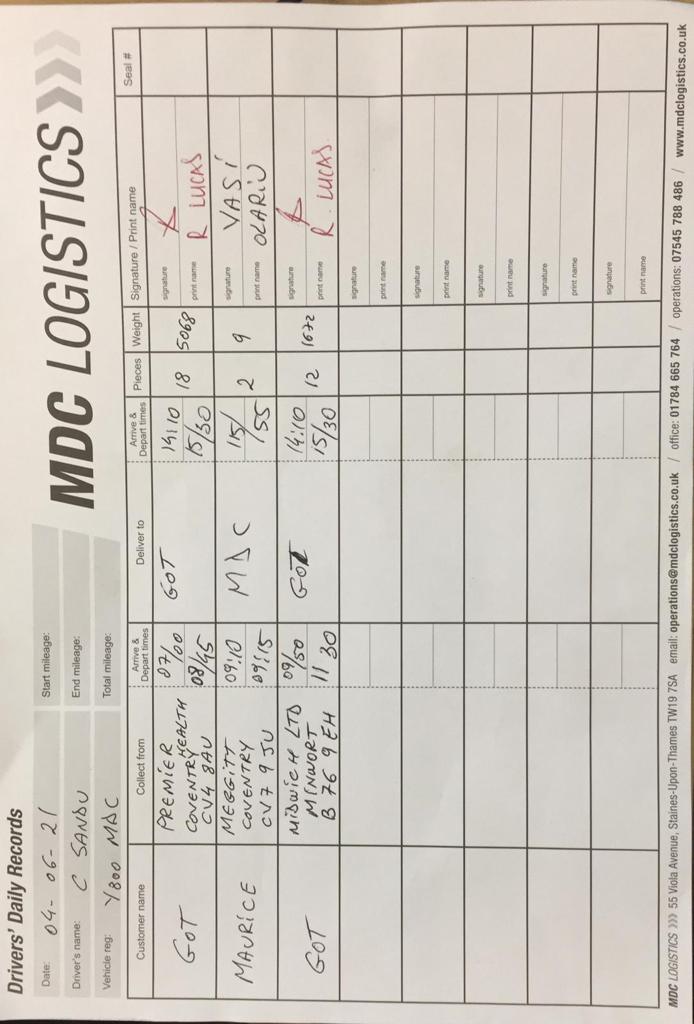 Drivers' Daily Records
Date: 04-06-21
Start mileage:
Driver's name: C SANDU
End mileage:
Vehicle reg: Y800 MDC
Total mileage:
MDC LOGISTICS >>>
Customer name Collect from Arrive & Depart times Deliver to Arrive & Depart times Pieces Weight Signature / Print name Seal #
GOT
PREMIER
HEALTH
COVENTRY
CV4 8AU
07/00
08/45
GOT
14:10
15/30
18
5068
signature
print name R LUCAS
MAURICE
MEGGITT
COVENTRY
CV7 9JU
09:10
09:15
MDC
115/
/55
2
9
signature VASI
print name OLARIU
GOT
MIDWICH LTD
MINWORT
B 76 9EH
09/50
11 30
GOT
14:10
15/30
12
1672
signature
print name R. LUCAS.
signature
print name
signature
print name
signature
print name
signature
print name
signature
print name
MDC LOGISTICS >>> 55 Viola Avenue, Staines-Upon-Thames TW19 7SA email: operations@mdclogistics.co.uk / office: 01784 665 764 / operations: 07545 788 486 / www.mdclogistics.co.uk